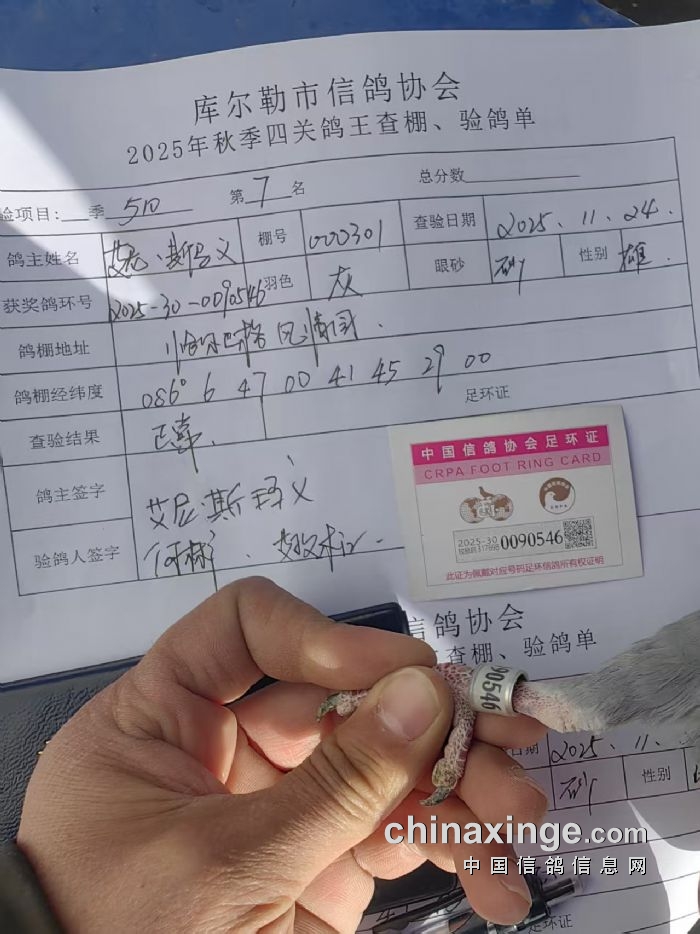 库尔勒市信鸽协会
2025年秋季四关鸽王查棚、验鸽单
验项目:__季 510 第 7 名 总分数
鸽主姓名 棚号 000301 查验日期 2025.11.24.
获奖鸽环号 2025-30-0090546 羽色 灰 眼砂 砂 性别 雄.
鸽棚地址
鸽棚经纬度 086° 6 47 00 41 45 29 00
查验结果 正常. 足环证
鸽主签字 艾尼·斯玛义
验鸽人签字
中国信鸽协会足环证
CRPA FOOT RING CARD
2025-30
0090546
此证为佩戴对应号码足环信鸽所有权证明
信鸽协会
查棚、验鸽单
90546
日期 2025.11.
砂 性别
足环证
chinaxinge.com
中国信鸽信息网